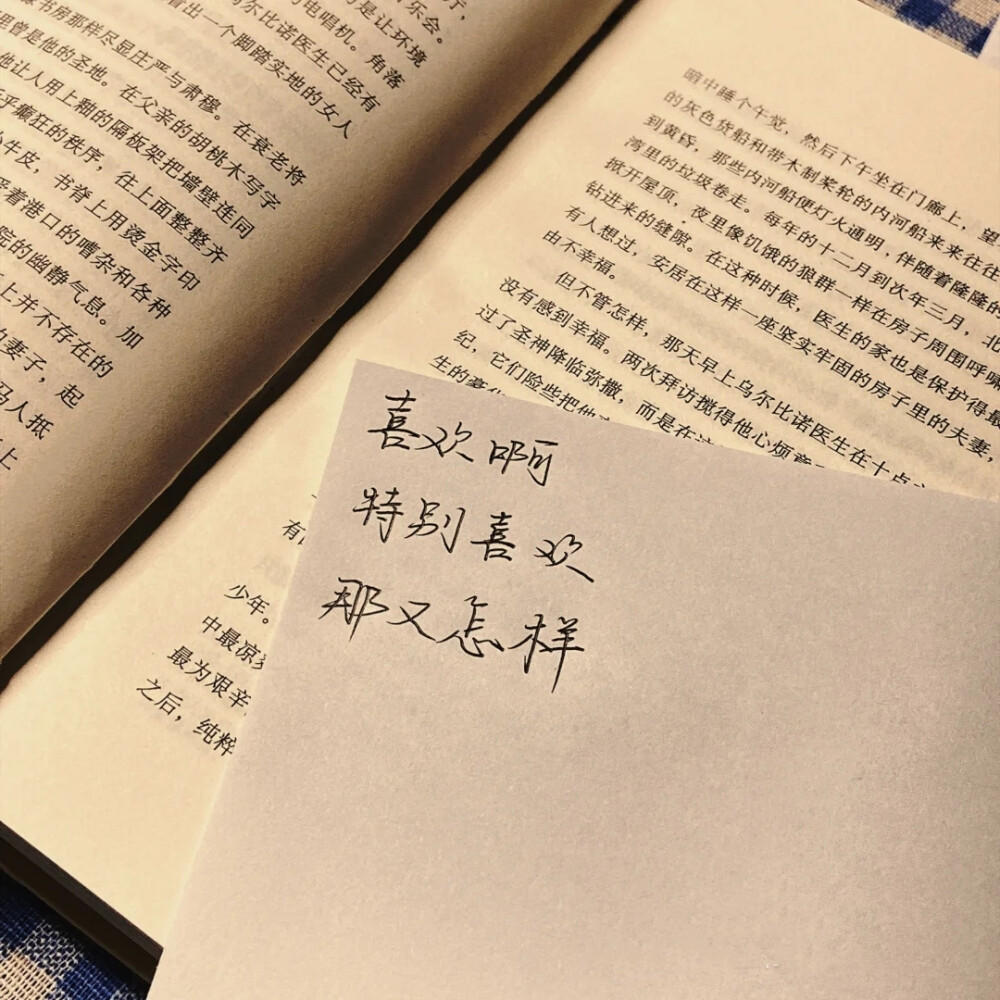 厅,
乐会。
是让环境
电唱机。角落
尔比诺医生已经有
看出一个脚踏实地的女人
书房那样尽显庄严与肃穆。在衰老将
里曾是他的圣地。在父亲的胡桃木写字
他让人用上釉的隔板架把墙壁连同
乎癫狂的秩序，往上面整整齐
小牛皮，书脊上用烫金字印
着港口的嘈杂和各种
院的幽静气息。加
上并不存在的
妻子，起
马人抵
上
暗中睡个午觉，然后下午坐在门廊上，望
的灰色货船和带木制桨轮的内河船来来往往
到黄昏，那些内河船便灯火通明，伴随着隆隆的
湾里的垃圾卷走。每年的十二月到次年三月，北
掀开屋顶，夜里像饥饿的狼群一样在房子周围呼啸
钻进来的缝隙。在这种时候，医生的家也是保护得最
有人想过，安居在这样一座坚实牢固的房子里的夫妻，
由不幸福。
但不管怎样，那天早上乌尔比诺医生在十点
没有感到幸福。两次拜访搅得他心烦意
过了圣神降临弥撒，而是在这
纪，它们险些把他
生的豪
有
少年。
中最凉
最为艰辛
之后，纯粹
喜欢啊
特别喜欢
那又怎样